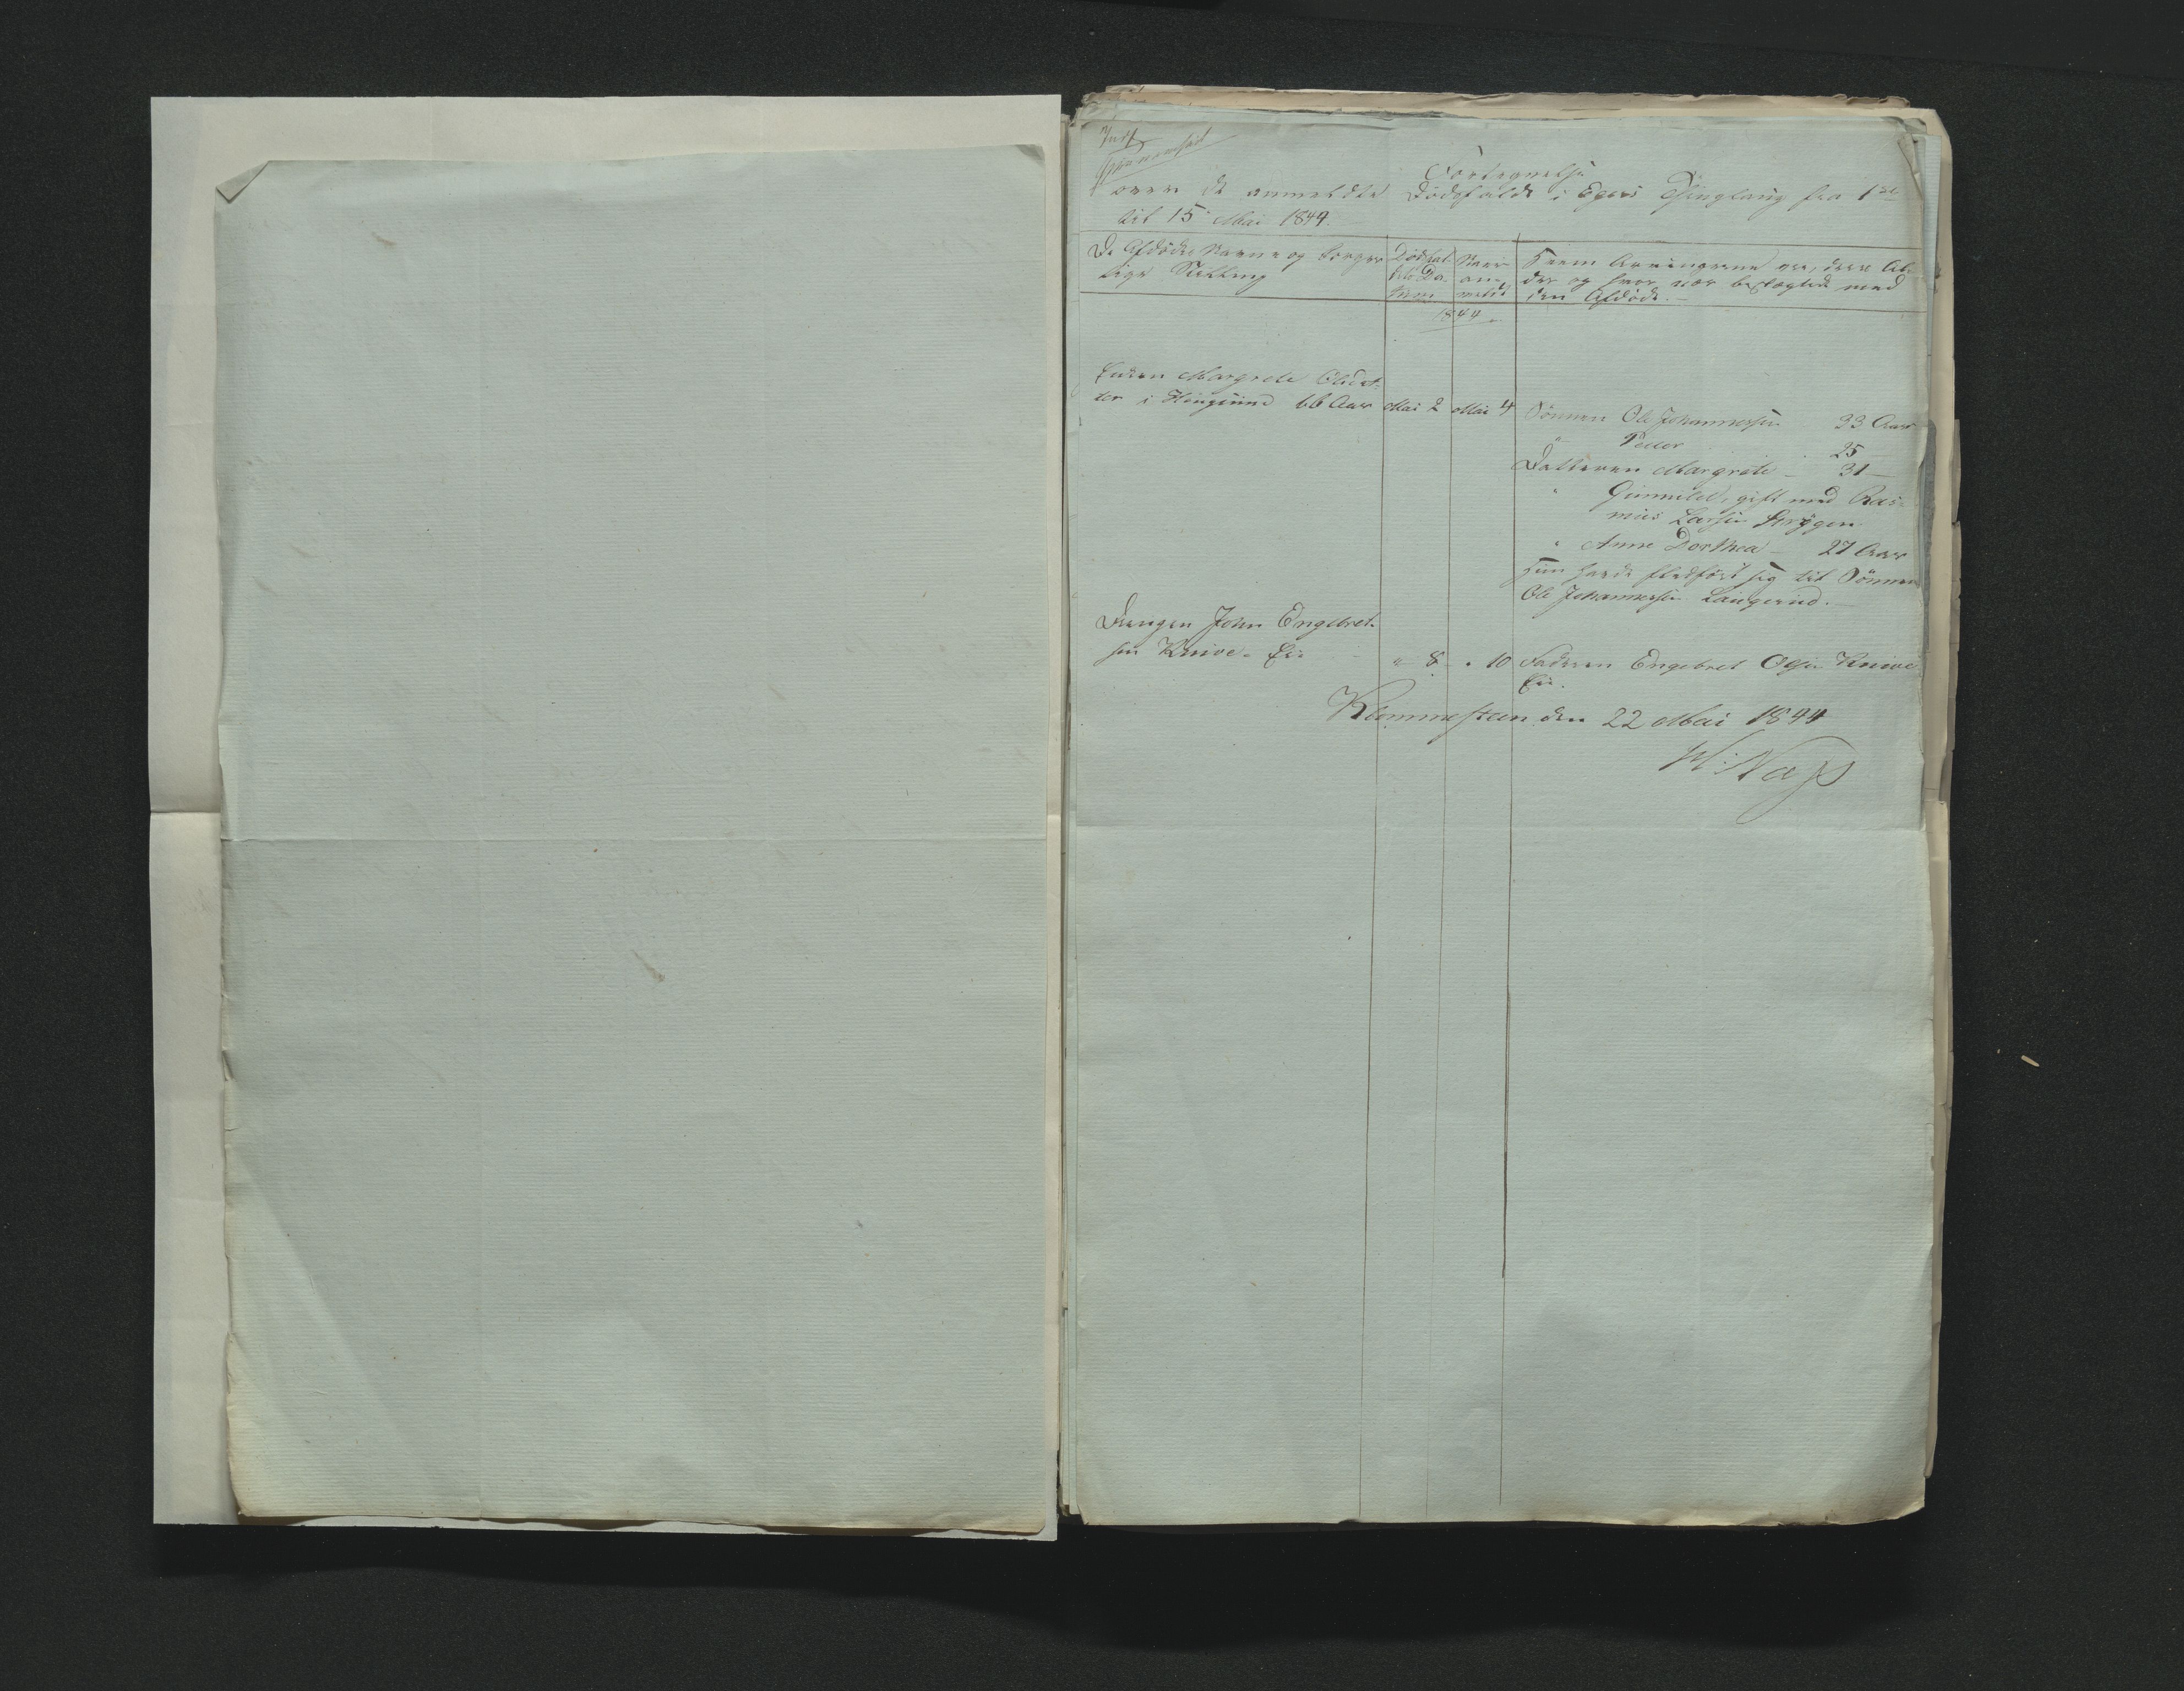 Fortegnelse
over de anmeldte Dødsfald i Egers Thinglaug fra 1ste
til 15 Mai 1844.
De Afdødes Navne og borger
lige Stilling
Dødsfal-
dets Da-
tum
Naar
an-
meldt
Hvem Arvingerne ere, deres Al-
der og hvor nær beslægtede med
den Afdøde.
1844.
Enken Margrete Olsdat-
ter i 66 Aar Mai 2 Mai 4 Sønnen Ole Johannessen 33 Aar
" Peder 25
Datteren Margrete 31
" Gunnild, gift med Ras-
mus Larsen
" Anne Dorthea 27 Aar
Hun havde fledført sig til Sønnen
Ole Johannessen
Drengen John Engebret-
sen Knive-Eie " 8 " 10 Faderen Engebret Olsen Knive
Eie.
Klommesteen den 22 Mai 1844